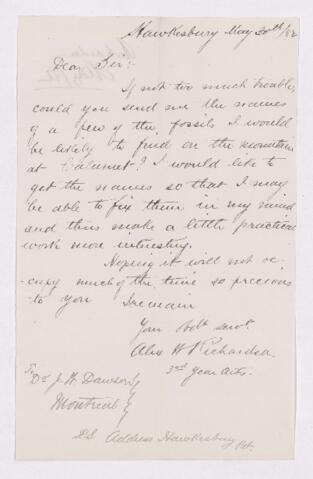 Hawkesbury May 30th/82
Dear Sir:-
If not too much trouble
could you send me the names
of a few of the fossils I would
be likely to find on the mountain
at Calumet? I would like to
get the names so that I may
be able to fix them in my mind
and thus make a little practical
work more interesting.
Hoping it will not oc-
cupy much of the time so precious
to you I remain
Your Obdt servt.
Alex W Richardson
3rd Year Arts.
To
Dr J. W Dawson
Montreal
P.S. Address Hawkesbury
Ont.